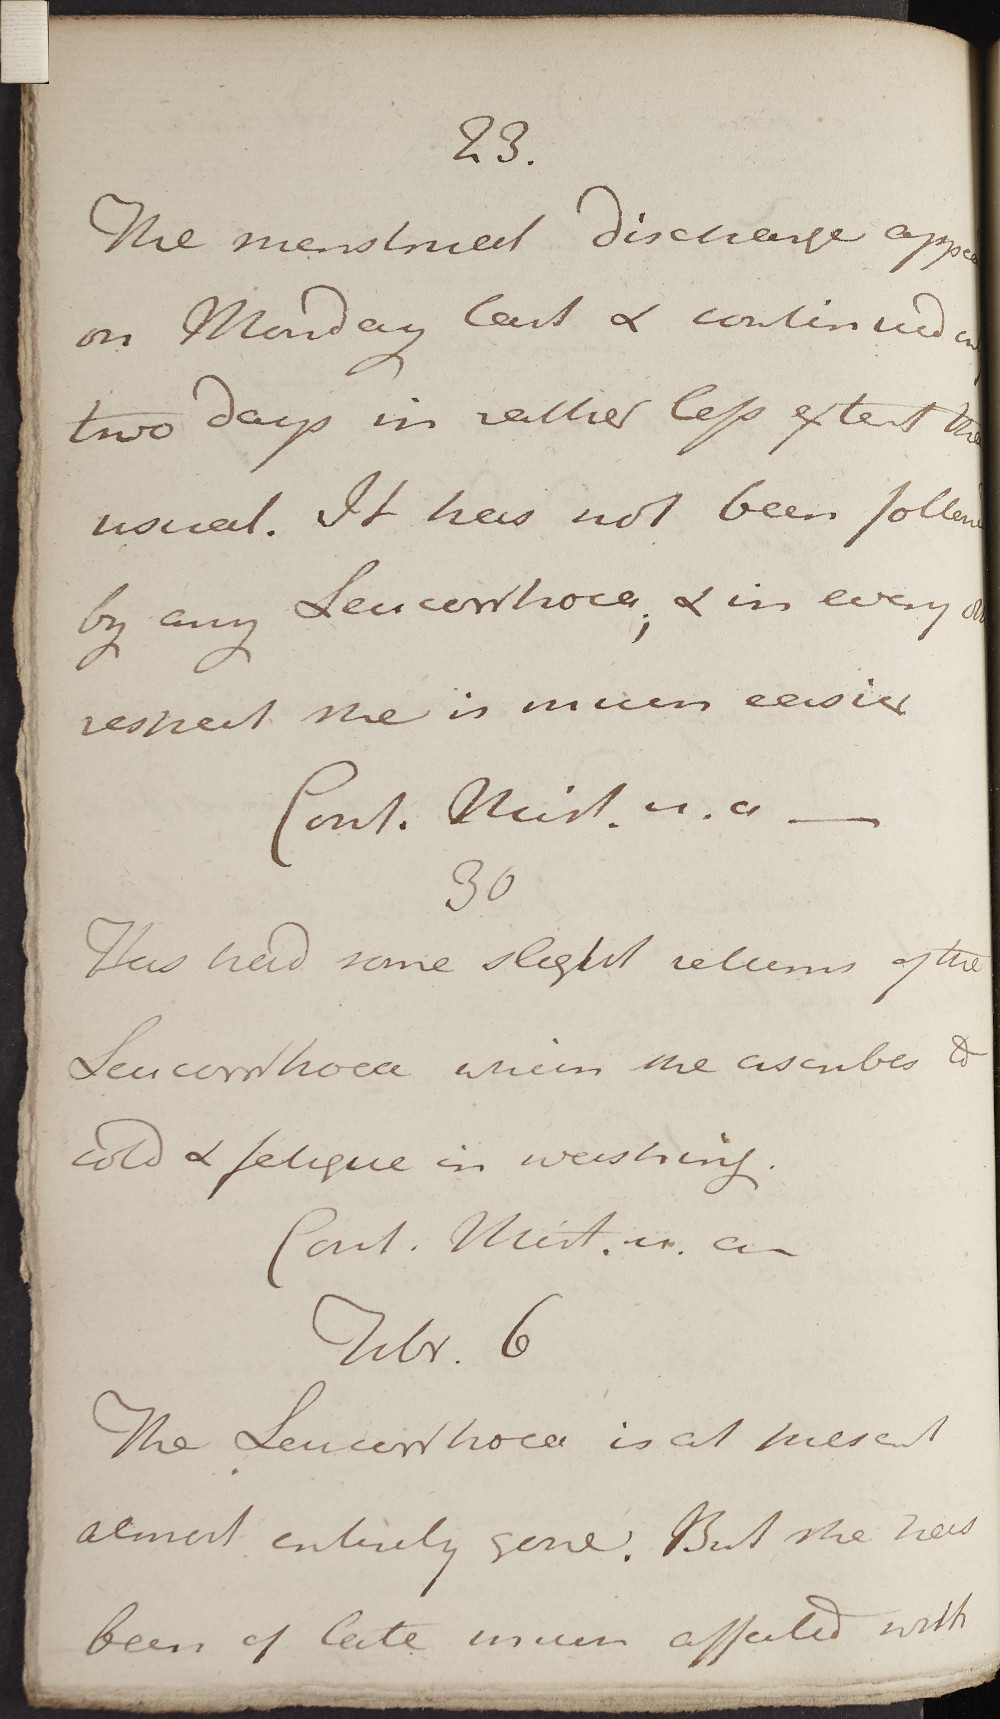 23.
The menstrual discharge appea
on Monday last & continued
two days in rather less extent than
usual. It has not been follow
by any Leucorrhoea; & in every
respect she is much easier
Cont. Mist. u. a —
30
Has had some slight returns of the
Leucorrhoea which she ascribes to
cold & fatigue in washing.
Cont. Mist. u. a
Febr. 6
The Leucorrhoea is at present
almost entirely gone. But she has
been of late much affected with